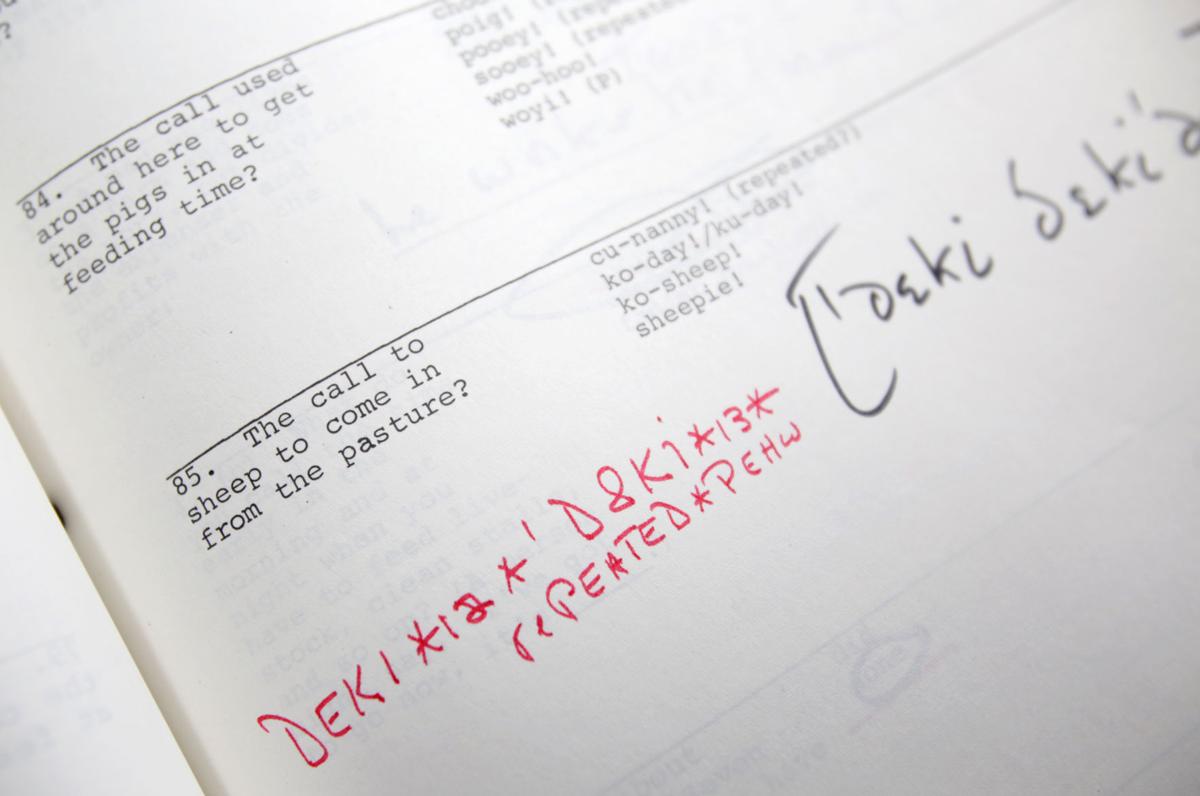 84. The call used
around here to get
the pigs in at
feeding time?
poig!
pooey!
sooey! (repeated
woo-hoo!
woyi! (P)
85. The call to
sheep to come in
from the pasture?
cu-nanny! (repeated?)
ko-day!/ku-day!
ko-sheep!
sheepie!
DEKI*12*'D&Ki*13*
rePEATED*PEHW